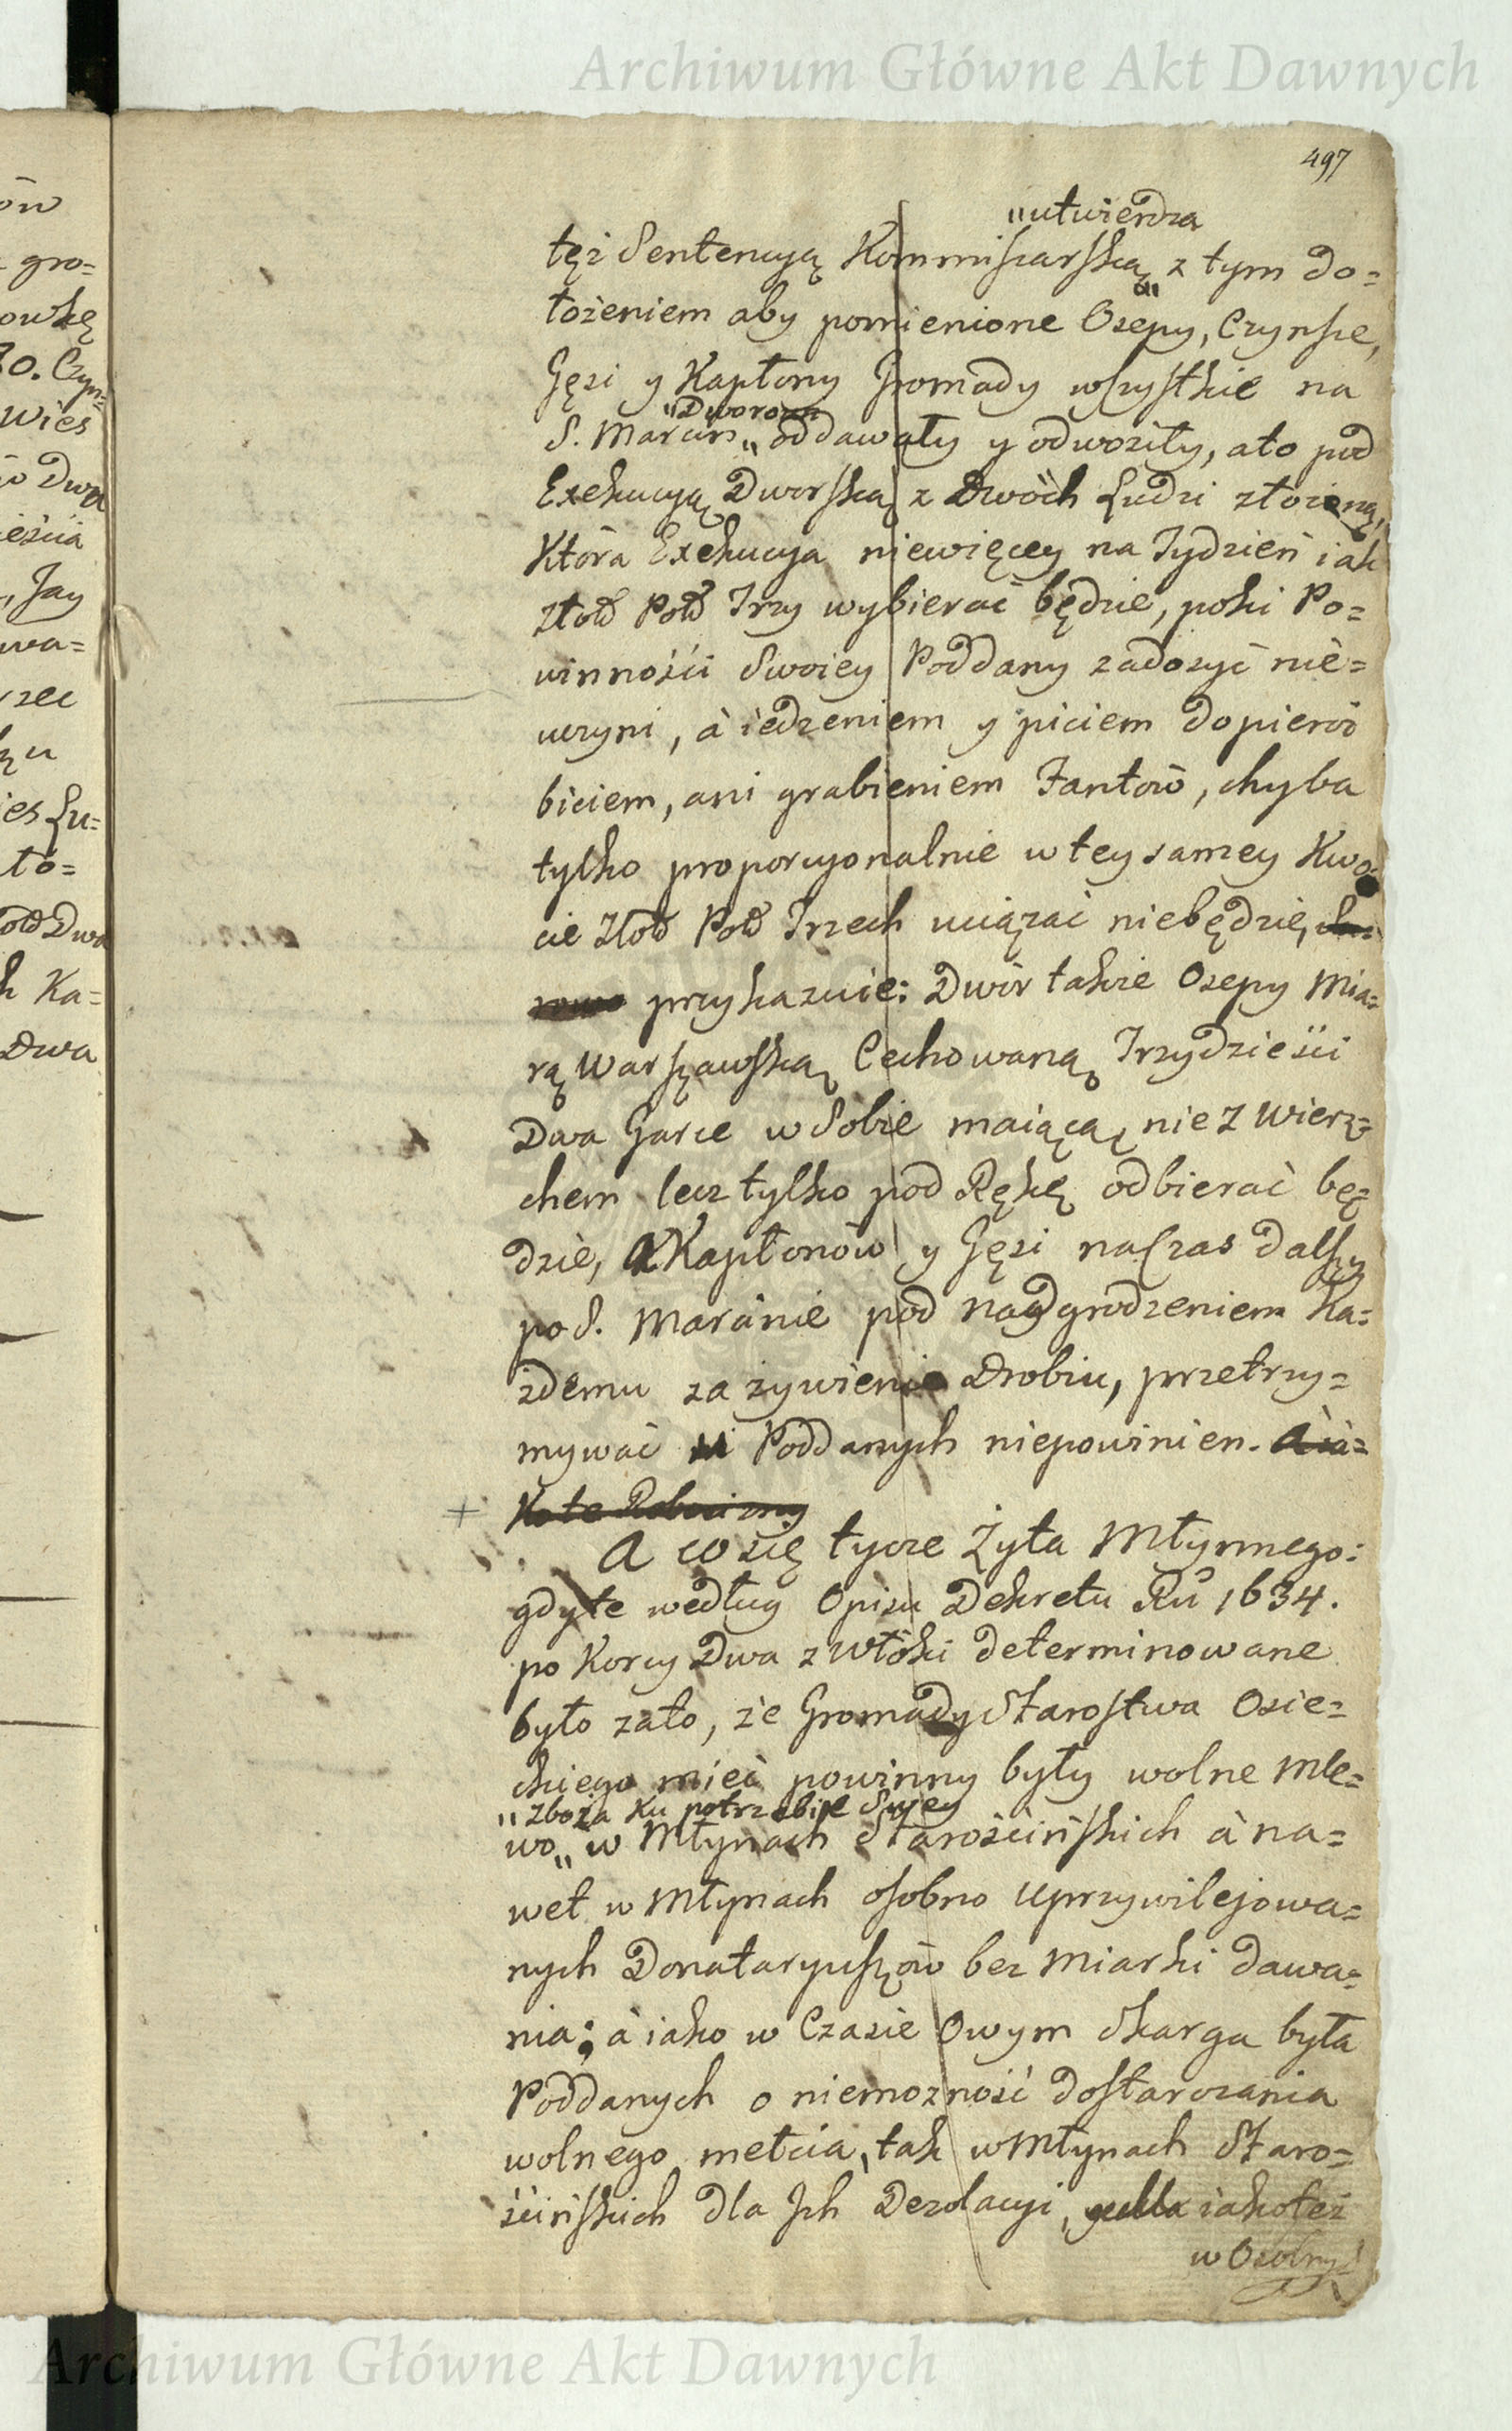 Archiwum Główne Akt Dawnych
497
"utwierdza
tęż Sentencyą Kommissarską z tym do=
łożeniem aby pomienione Osepy, Czynsze,
Gęsi y Kapłony Gromady wszystkie na
"Dworowi
S. Marcin" oddawały y odwoziły, ato pod
Exekucyą Dworską z Dwóch Ludzi złożoną,
Która Exekucya niewięcey na Tydzień iak
złotd Pold Trzy wybierać będzie, poki Po=
winności Swoiey Poddany zadosyć nie=
uczyni, à iedzeniem y piciem dopieroż
biciem, ani grabieniem Fantów, chyba
tylko proporcyonalnie w tey samey Kwo=
cie Złotd Pold Trzech uciążać niebędzie,
przykazuie: Dwór także Osepy Mia=
rą Warszawską Cechowaną Trzydzieści
Dwa Garce w Sobie maiącą nie z wierz=
chem lecz tylko pod Rękę odbierać bę=
dzie, A Kapłonów y Gęsi na Czas dalszy
po S. Marcinie pod nadgrodzeniem Ka=
żdemu za żywienie Drobiu, przetrzy=
mywać u Poddanych niepowinien. A ia=
Kote Robocizny
+
A co się tycze Żyta Młynnego:
gdyte według Opisu Dekretu Ru 1634.
po Korcy Dwa z Włóki determinowane
było zato, że Gromady Starostwa Osie=
ckiego mieć powinny były wolne Mle=
"zboża Ku potrzebie Swey
wo" w Młynach Starościńskich à na=
wet w Młynach osobno Uprzywilejowa=
nych Donataryuszów bez Miarki dawa=
nia; à iako w Czasie Owym Skarga była
Poddanych o niemozność dostarczania
wolnego mełcia, tak w Młynach Staro=
ścińskich dla Jch Dezolacyi, iakoteż
w Osobny=
ōw
gro=
owkę
30. Czyn=
wies
Dwa
ieścia
, Jay
wa=
rzec
zu
ies Lu=
to=
otd Dwa
h Ka=
Dwa
Archiwum Główne Akt Dawnych